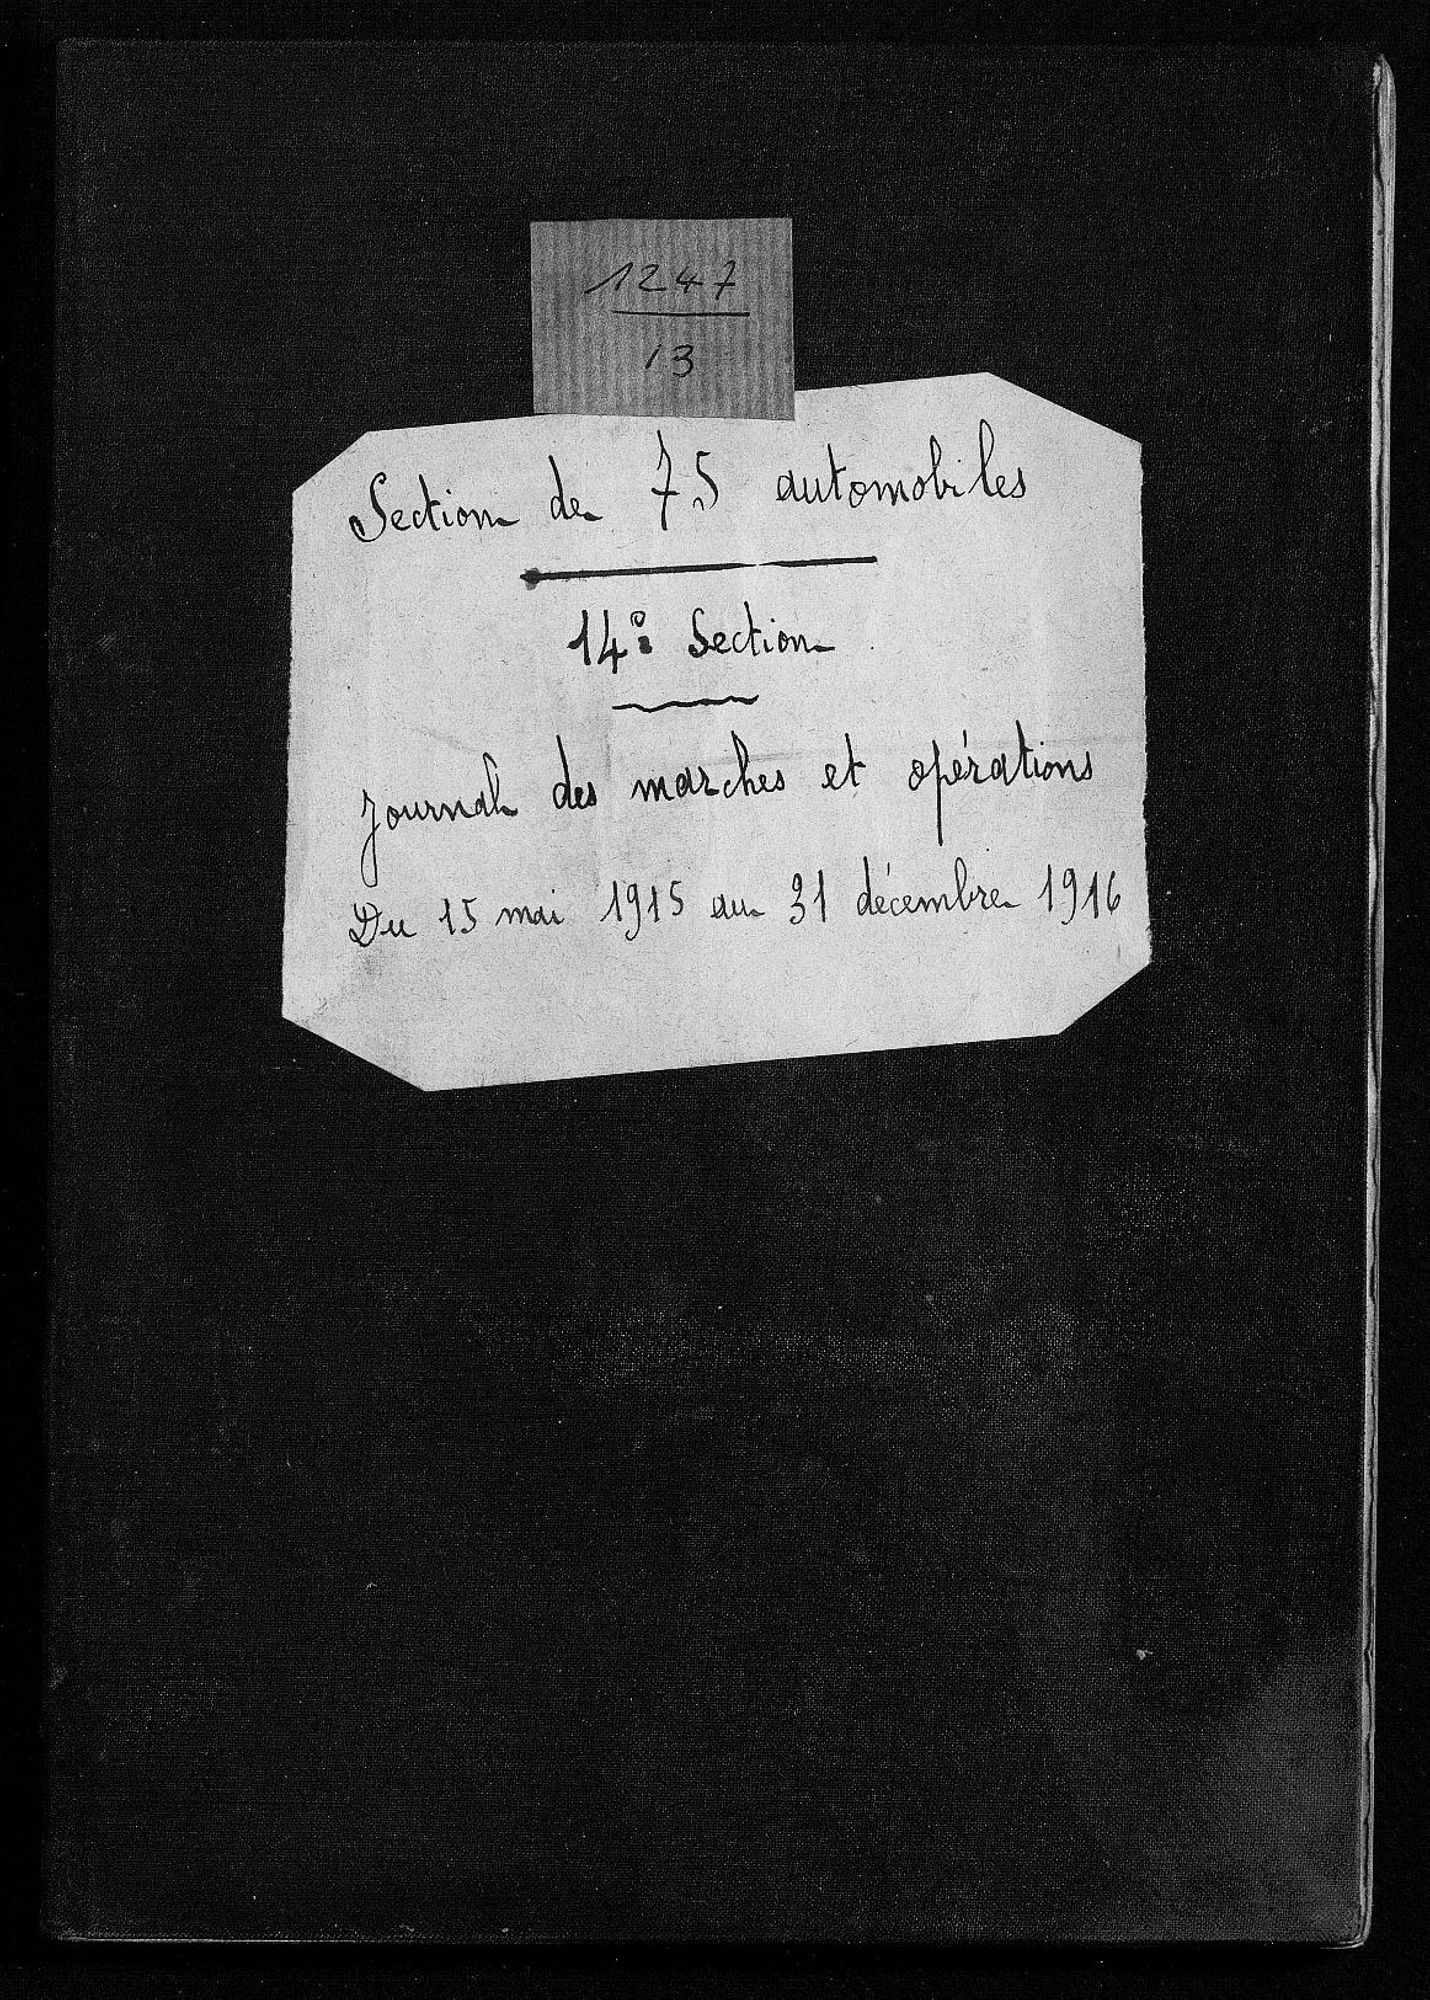 1247
13
Section de 75 automobiles
14e Section
Journal des marches et opérations
Du 15 mai 1915 au 31 décembre 1916